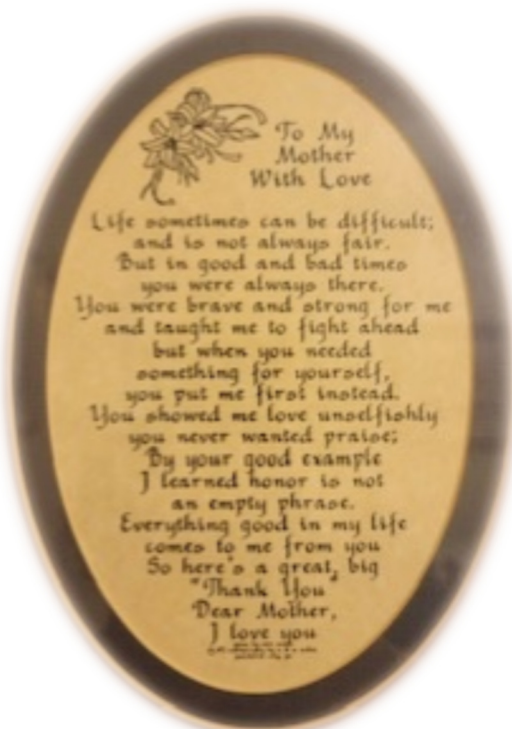 To My
Mother
With Love
Life sometimes can be difficult;
and is not always fair.
But in good and bad times
you were always there.
You were brave and strong for me
and taught me to fight ahead
but when you needed
something for yourself,
you put me first instead.
You showed me love unselfishly
you never wanted praise;
By your good example
I learned honor is not
an empty phrase.
Everything good in my life
comes to me from you
So here's a great, big
"Thank You"
Dear Mother,
I love you